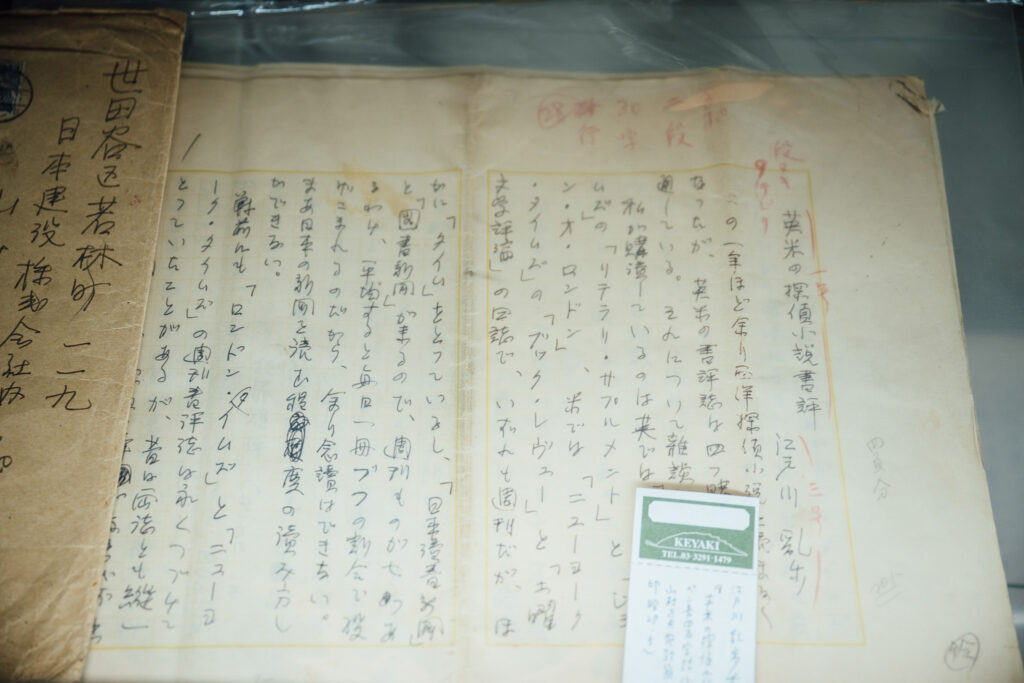 英米の探偵小説書評
江戸川乱歩
この一年ほど余り西洋探偵小説
なったが、英米の書評誌は四つ
通している。それについて雑談
私が購讀しているのは英では
ムズ」の「リテラリ・サプルメント」と
ン・オ・ロンドン」、米では「ニューヨーク
・タイムズ」の「ブック・レヴュー」と「土曜
文学評論」の四誌で、いずれも週刊だが、ほ
かに「タイム」をとっているし、「日本讀書新聞
と「圖書新聞」が来るので、週刊ものが七つあ
るわけ、平均すると毎日一冊ヅツの割合で投
げこまれるのだから、余り念讀はできない。
まあ日本の新聞を読む程度の讀み方し
かできない。
戦前にも「ロンドン・タイムズ」と「ニューヨ
ーク・タイムズ」の週刊書評誌は永くつづけて
とっていたことがあるが、昔は両誌とも
二段
30字
行
四百分
1
世田谷区若林町一一九
日本建設株式会社内
KEYAKI
TEL.03-3291-1479
江戸川乱歩